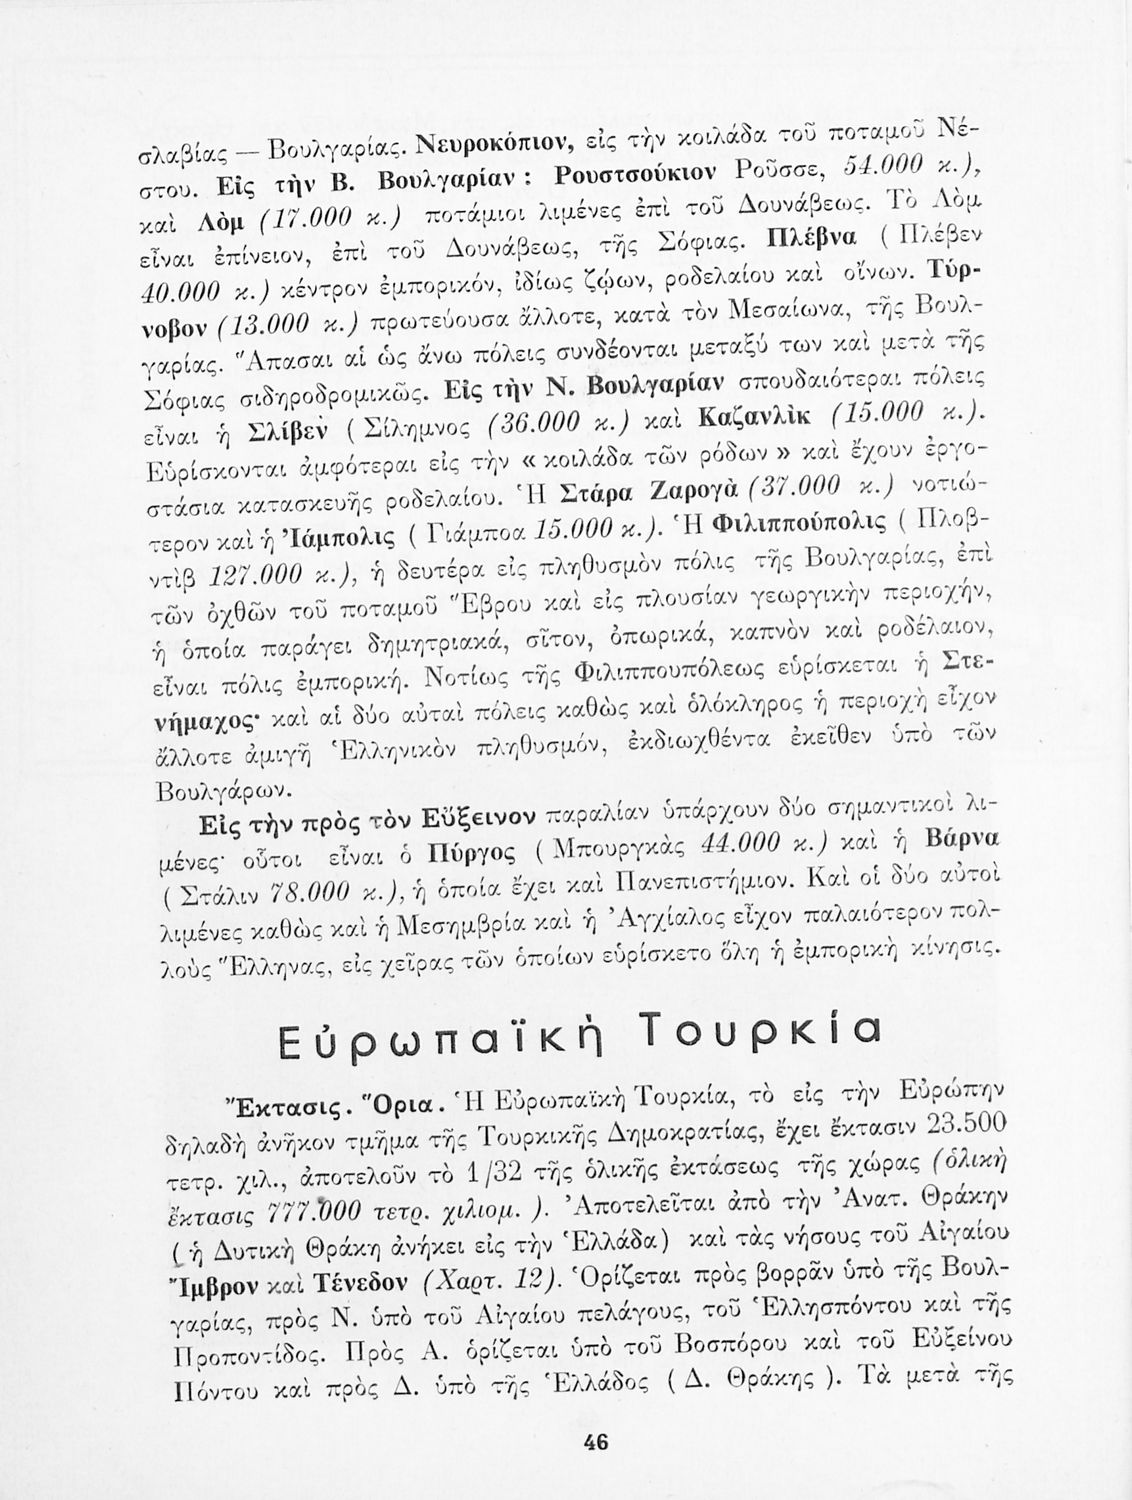 σλαβίας — Βουλγαρίας. Νευροκόπιον, εἰς τὴν κοιλάδα τοῦ ποταμοῦ Νέ-
στου. Εἰς τὴν Β. Βουλγαρίαν : Ρουστσούκιον Ροῦσσε, 54.000 κ.),
καὶ Λὸμ (17.000 κ.) ποτάμιοι λιμένες ἐπὶ τοῦ Δουνάβεως. Τὸ Λὸμ
εἶναι ἐπίνειον, ἐπὶ τοῦ Δουνάβεως, τῆς Σόφιας. Πλέβνα ( Πλέβεν
40.000 κ.) κέντρον ἐμπορικόν, ἰδίως ζῴων, ροδελαίου καὶ οἴνων. Τύρ-
νοβον (13.000 κ.) πρωτεύουσα ἄλλοτε, κατὰ τὸν Μεσαίωνα, τῆς Βουλ-
γαρίας. Ἅπασαι αἱ ὡς ἄνω πόλεις συνδέονται μεταξύ των καὶ μετὰ τῆς
Σόφιας σιδηροδρομικῶς. Εἰς τὴν Ν. Βουλγαρίαν σπουδαιότεραι πόλεις
εἶναι ἡ Σλίβεν ( Σίλημνος (36.000 κ.) καὶ Καζανλὶκ (15.000 κ.).
Εὑρίσκονται ἀμφότεραι εἰς τὴν « κοιλάδα τῶν ρόδων » καὶ ἔχουν ἐργο-
στάσια κατασκευῆς ροδελαίου. Ἡ Στάρα Ζαρογὰ (37.000 κ.) νοτιώ-
τερον καὶ ἡ Ἰάμπολις ( Γιάμποα 15.000 κ.). Ἡ Φιλιππούπολις ( Πλοβ-
ντὶβ 127.000 κ.), ἡ δευτέρα εἰς πληθυσμὸν πόλις τῆς Βουλγαρίας, ἐπὶ
τῶν ὀχθῶν τοῦ ποταμοῦ Ἕβρου καὶ εἰς πλουσίαν γεωργικὴν περιοχήν,
ἡ ὁποία παράγει δημητριακά, σῖτον, ὀπωρικά, καπνὸν καὶ ροδέλαιον,
εἶναι πόλις ἐμπορική. Νοτίως τῆς Φιλιππουπόλεως εὑρίσκεται ἡ Στε-
νήμαχος· καὶ αἱ δύο αὐταὶ πόλεις καθὼς καὶ ὁλόκληρος ἡ περιοχὴ εἶχον
ἄλλοτε ἀμιγῆ Ἑλληνικὸν πληθυσμόν, ἐκδιωχθέντα ἐκεῖθεν ὑπὸ τῶν
Βουλγάρων.
Εἰς τὴν πρὸς τὸν Εὔξεινον παραλίαν ὑπάρχουν δύο σημαντικοὶ λι-
μένες· οὗτοι εἶναι ὁ Πύργος ( Μπουργκὰς 44.000 κ.) καὶ ἡ Βάρνα
( Στάλιν 78.000 κ.), ἡ ὁποία ἔχει καὶ Πανεπιστήμιον. Καὶ οἱ δύο αὐτοὶ
λιμένες καθὼς καὶ ἡ Μεσημβρία καὶ ἡ Ἀγχίαλος εἶχον παλαιότερον πολ-
λοὺς Ἕλληνας, εἰς χεῖρας τῶν ὁποίων εὑρίσκετο ὅλη ἡ ἐμπορικὴ κίνησις.
Εὐρωπαϊκὴ Τουρκία
Ἔκτασις. Ὅρια. Ἡ Εὐρωπαϊκὴ Τουρκία, τὸ εἰς τὴν Εὐρώπην
δηλαδὴ ἀνῆκον τμῆμα τῆς Τουρκικῆς Δημοκρατίας, ἔχει ἔκτασιν 23.500
τετρ. χιλ., ἀποτελοῦν τὸ 1/32 τῆς ὁλικῆς ἐκτάσεως τῆς χώρας (ὁλικὴ
ἔκτασις 777.000 τετρ. χιλιομ. ). Ἀποτελεῖται ἀπὸ τὴν Ἀνατ. Θράκην
( ἡ Δυτικὴ Θράκη ἀνήκει εἰς τὴν Ἑλλάδα) καὶ τὰς νήσους τοῦ Αἰγαίου
Ἴμβρον καὶ Τένεδον (Χαρτ. 12). Ὁρίζεται πρὸς βορρᾶν ὑπὸ τῆς Βουλ-
γαρίας, πρὸς Ν. ὑπὸ τοῦ Αἰγαίου πελάγους, τοῦ Ἑλλησπόντου καὶ τῆς
Προποντίδος. Πρὸς Α. ὁρίζεται ὑπὸ τοῦ Βοσπόρου καὶ τοῦ Εὐξείνου
Πόντου καὶ πρὸς Δ. ὑπὸ τῆς Ἑλλάδος ( Δ. Θράκης ). Τὰ μετὰ τῆς
46